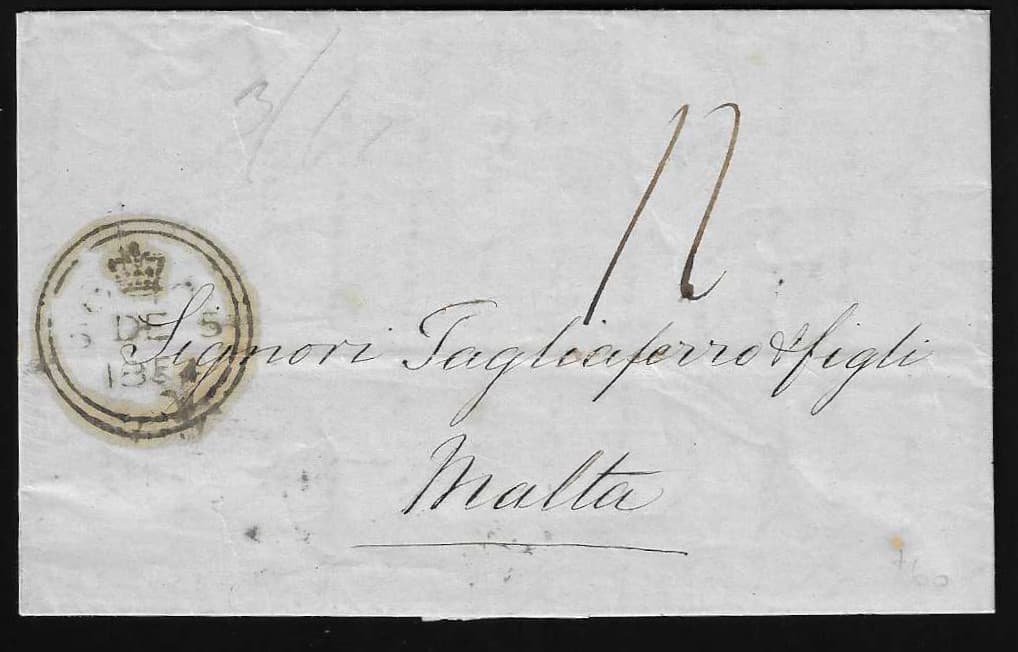 12
DE 5
1854
Signori Tagliaferro & figli
Malta